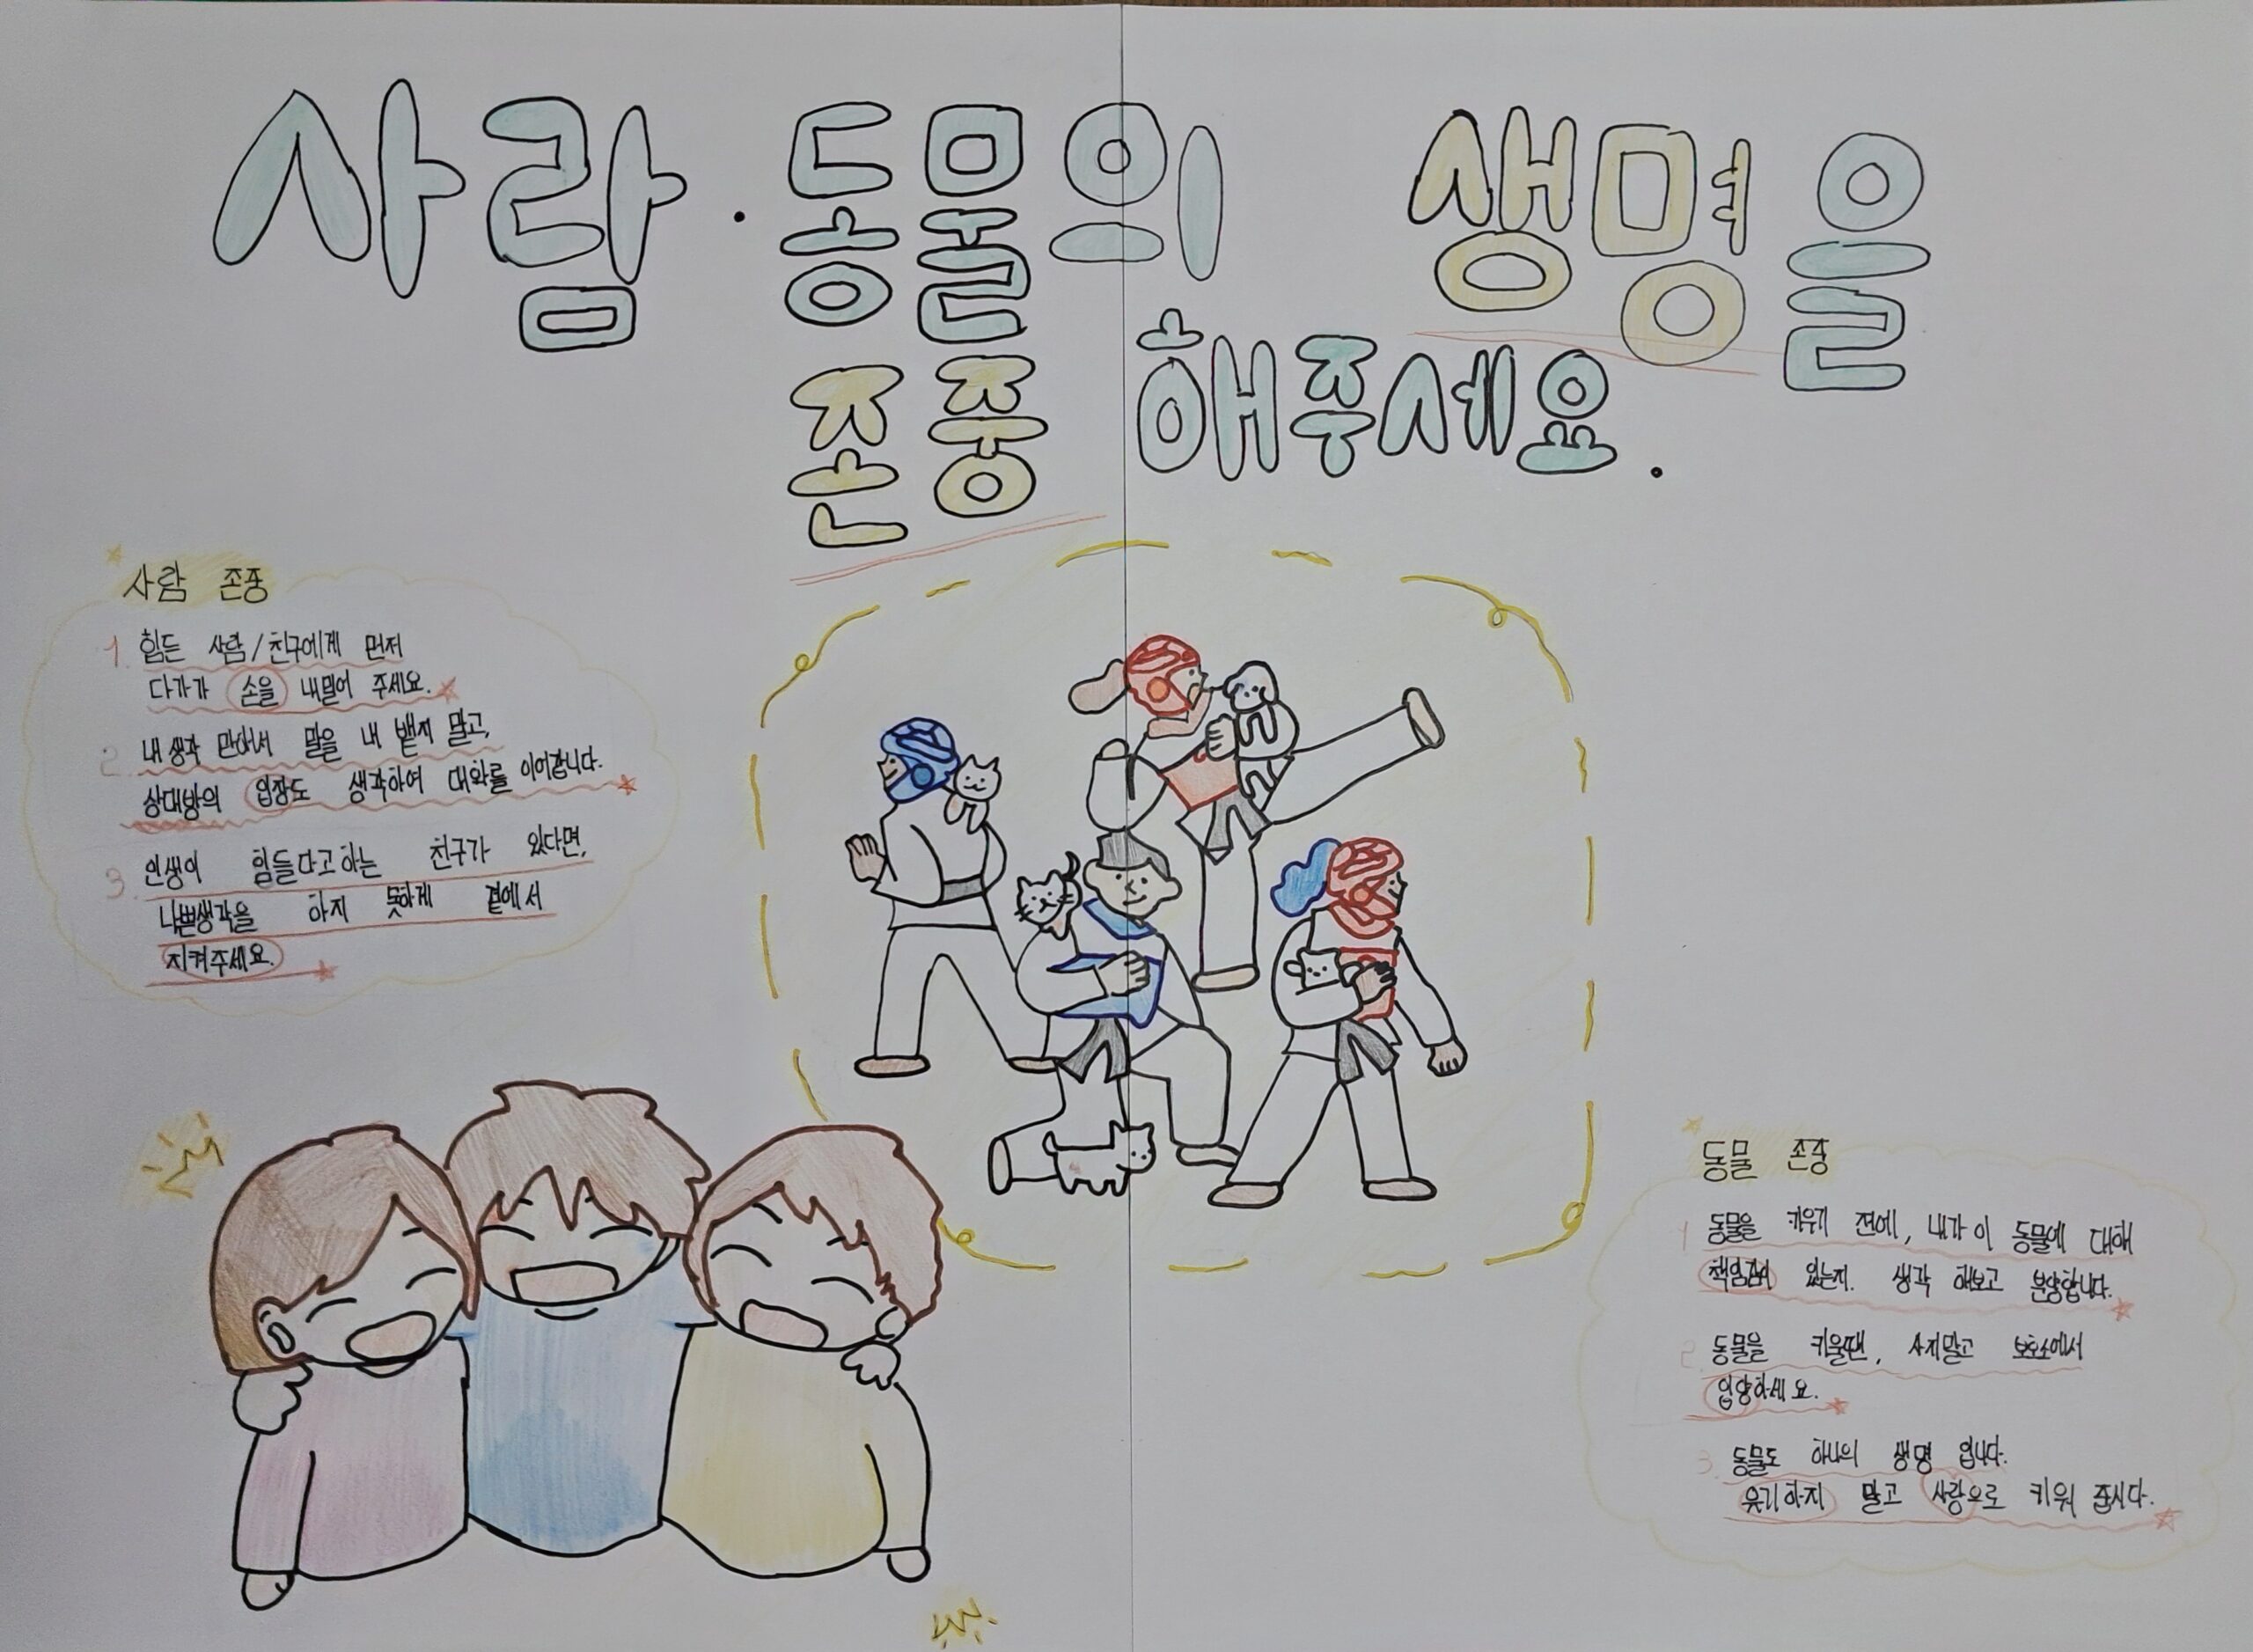 사람·동물의 생명을
존중 해주세요.
사람 존중
1. 힘든 사람/친구에게 먼저
다가가 손을 내밀어 주세요.
2. 내 생각 만하서 말을 내 뱉지 말고,
상대방의 입장도 생각하여 대화를 이어갑니다.
3. 인생이 힘들다고하는 친구가 있다면,
나쁜생각을 하지 못하게 곁에서
지켜주세요.
동물 존중
1 동물을 키우기 전에, 내가 이 동물에 대해
책임감이 있는지. 생각 해보고 분양합니다.
2. 동물을 키울땐, 사지말고 보호소에서
입양하세요.
3. 동물도 하나의 생명 입니다.
유기하지 말고 사랑으로 키워 줍시다.